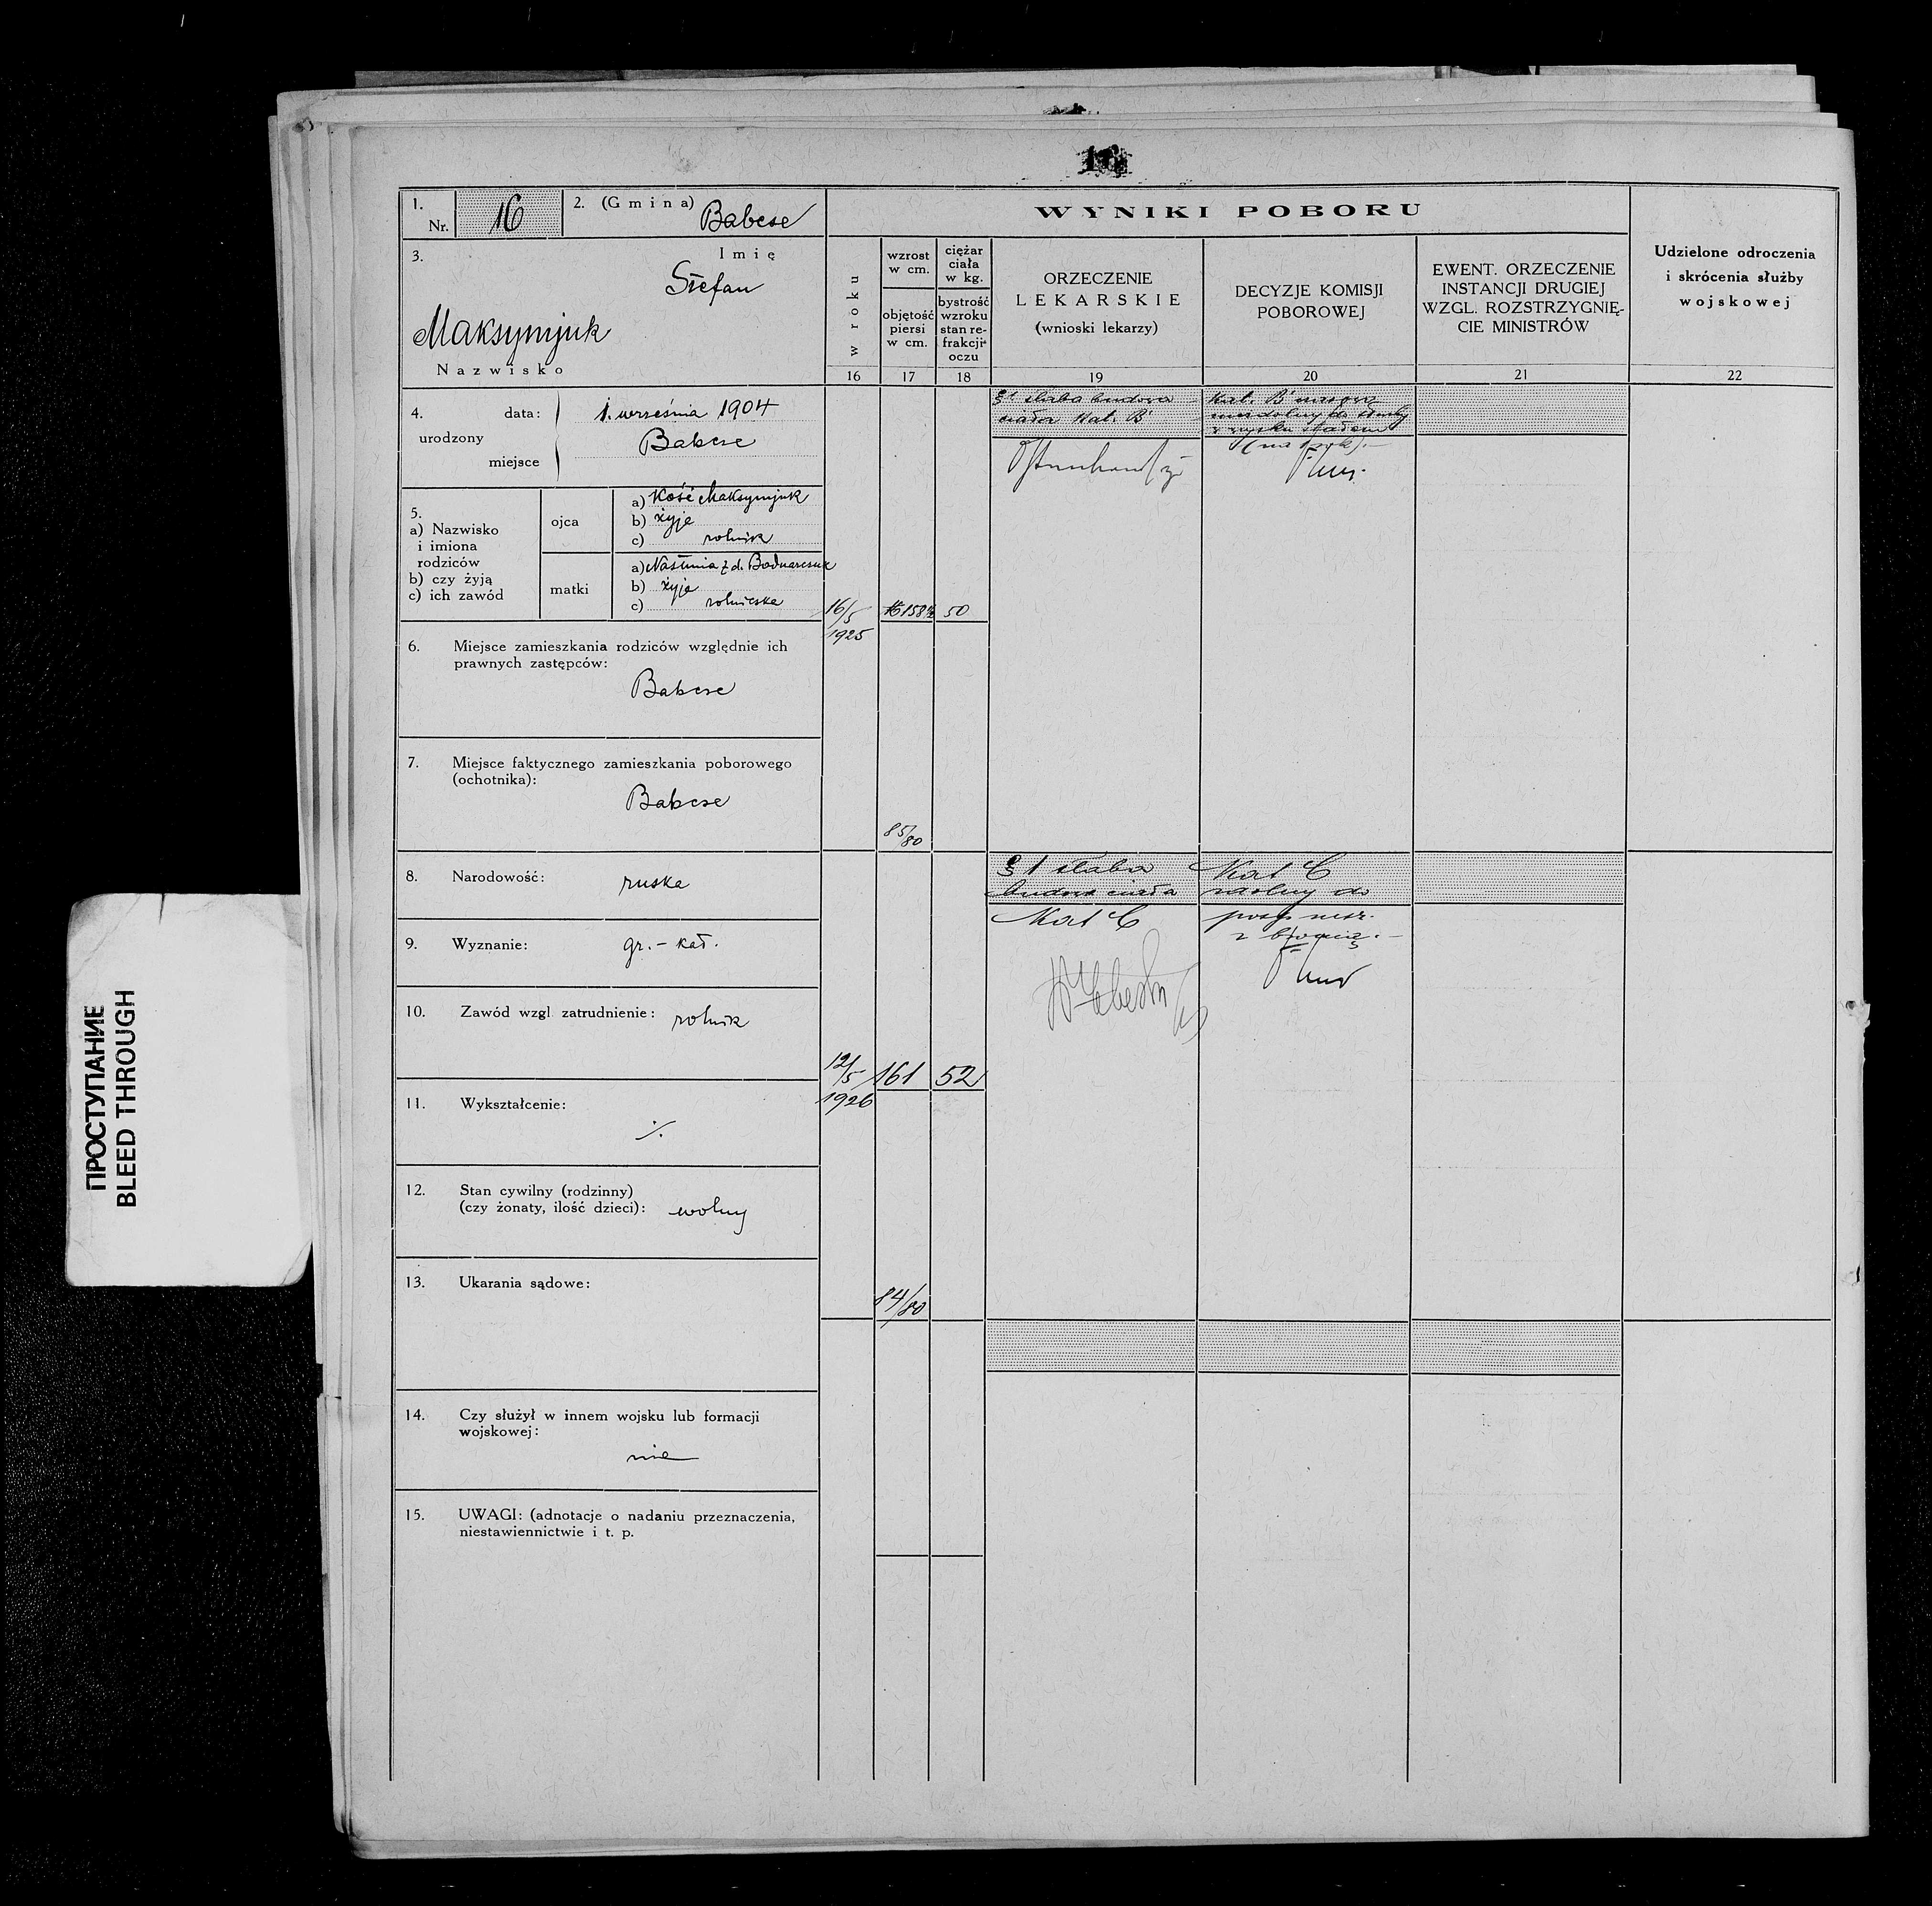 16
1.
Nr.
16
2. (Gmina)
Babcse
WYNIKI POBORU
3.
Imię
Stefan
Maksymjuk
Nazwisko
w roku
wzrost
w cm.
objętość
piersi
w cm.
ciężar
ciała
w kg.
bystrość
wzroku
stan re-
frakcji
oczu
ORZECZENIE
LEKARSKIE
(wnioski lekarzy)
DECYZJE KOMISJI
POBOROWEJ
EWENT. ORZECZENIE
INSTANCJI DRUGIEJ
WZGL. ROZSTRZYGNIĘ-
CIE MINISTRÓW
Udzielone odroczenia
i skrócenia służby
wojskowej
16 17 18 19 20 21 22
4.
urodzony
data:
1. września 1904
miejsce
Babcse
5.
a) Nazwisko
i imiona
rodziców
b) czy żyją
c) ich zawód
ojca
a) Kość Maksymjuk
b) żyje
c) rolnik
matki
a) Nastunia z d. Bodnarczuk
b) żyje
c) rolniczka
16/5
1925
158½
50
85/80
§1 słaba budowa
ciała Kat. B
Kat. B
(na 1 rok).—
6. Miejsce zamieszkania rodziców względnie ich
prawnych zastępców:
Babcse
7. Miejsce faktycznego zamieszkania poborowego
(ochotnika):
Babcse
8. Narodowość:
ruska
9. Wyznanie:
gr.-kat.
10. Zawód wzgl. zatrudnienie:
rolnik
12/5
1926
161
52
84/80
§1 słaba
budowa ciała
Kat C
Kat C
zdolny do
z bronią.—
11. Wykształcenie:
./.
12. Stan cywilny (rodzinny)
(czy żonaty, ilość dzieci):
wolny
13. Ukarania sądowe:
14. Czy służył w innem wojsku lub formacji
wojskowej:
nie
15. UWAGI: (adnotacje o nadaniu przeznaczenia,
niestawiennictwie i t. p.
ПРОСТУПАНИЕ
BLEED THROUGH